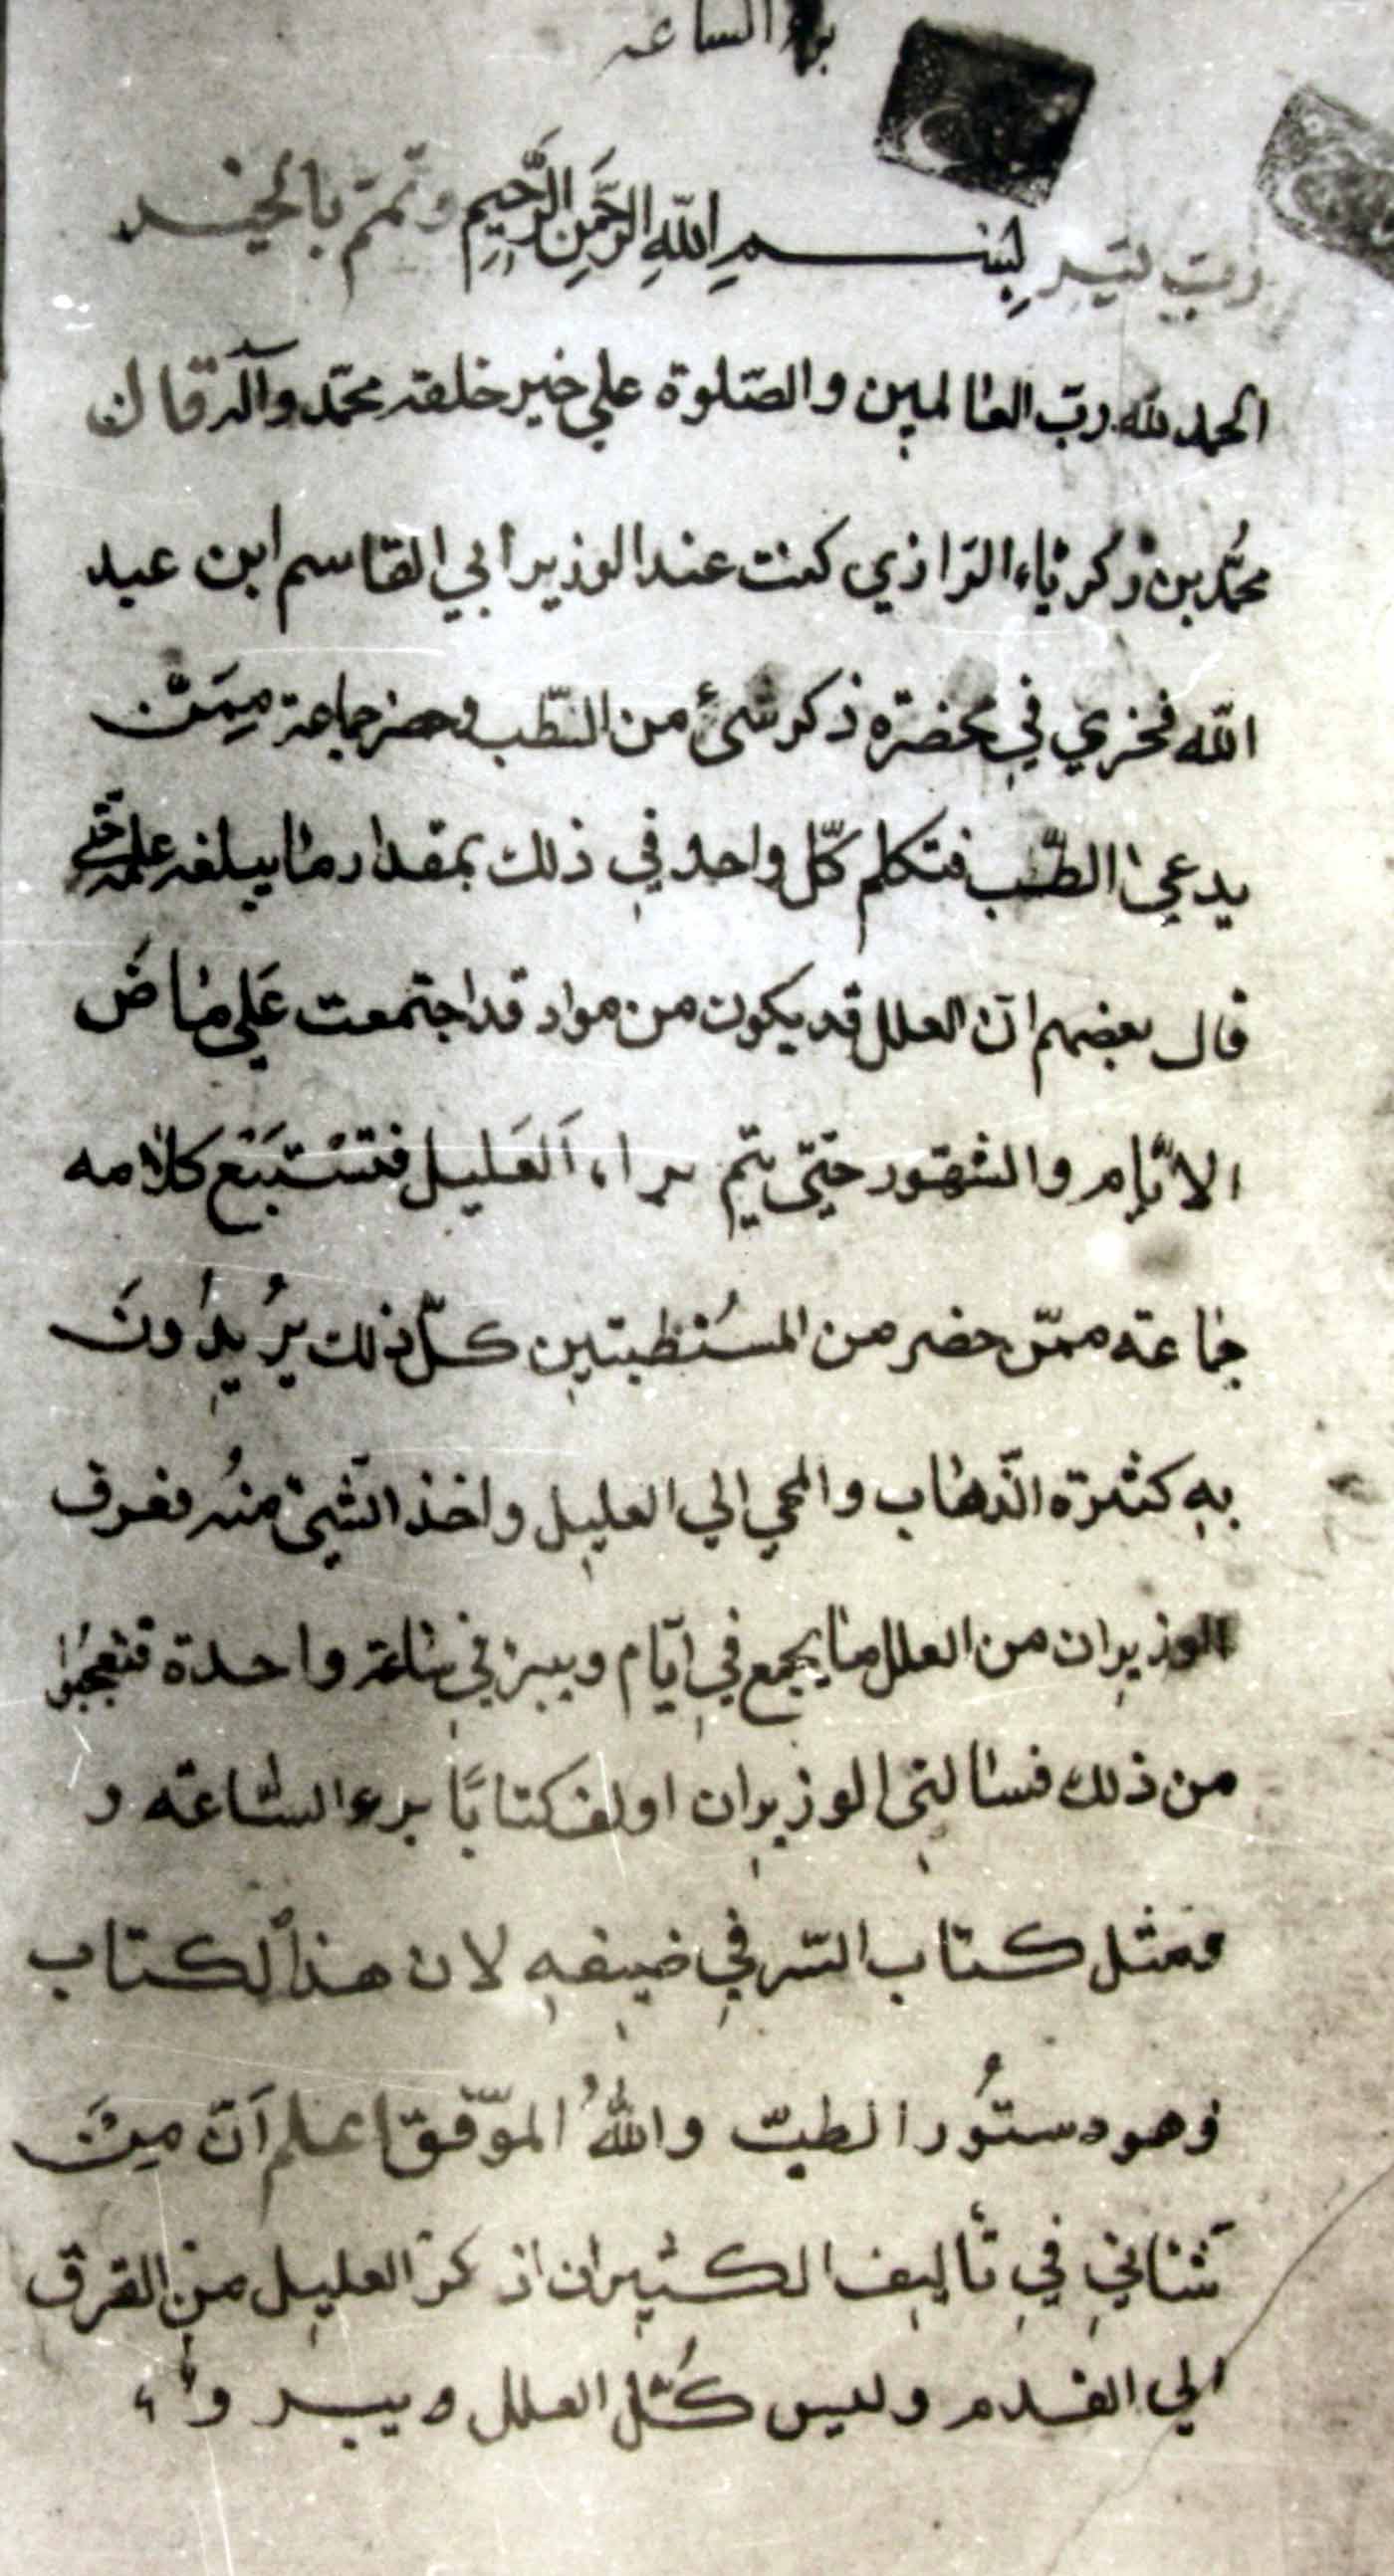 برء الساعه
ربّ يسّر بِسْمِ اللّهِ الرَّحْمنِ الرَّحِيمِ وتمّم بالخير
الحمد لله ربّ العالمين والصّلوة علي خير خلقه محمّد وآله قال
محمّد بن زكرياء الرّازي كنت عند الوزير أبي القاسم ابن عبد
اللّه فخري في محضره ذكر شئ من الطّب وحضر جماعة مِمَنْ
يدعي الطّب فتكلم كلّ واحد في ذلك بمقدار ما يبلغه علمه حتّي
قال بعضهم انّ العلل قد يكون من مواد قد اجتمعت عَلي ما
الايّام والشهور حتي يتم براء العَليل فتستبتع كلامه
جماعته ممّن حضر من المسُتطبتين كلّ ذلك يُريدُونَ
بهِ كثرة الذّهاب والمجي الي العليل واخذ الشئ منهُ فعرف
الوزير ان من العلل ما يجمع في ايّام ويبرء في ساعة واحدة فتعجبُوا
من ذلك فسالني الوزير ان اولف كتابًا برء السّاعته و
ومثل كتاب السّر في لان هذا لكتاب
وهو دستُور الطبّ واللّهُ الموّفق اعلم اَنّ مِنْ
في تأليف الكثير ان اذكر العليل من القرق
الي القدم وليس كُلّ العلل ويبر